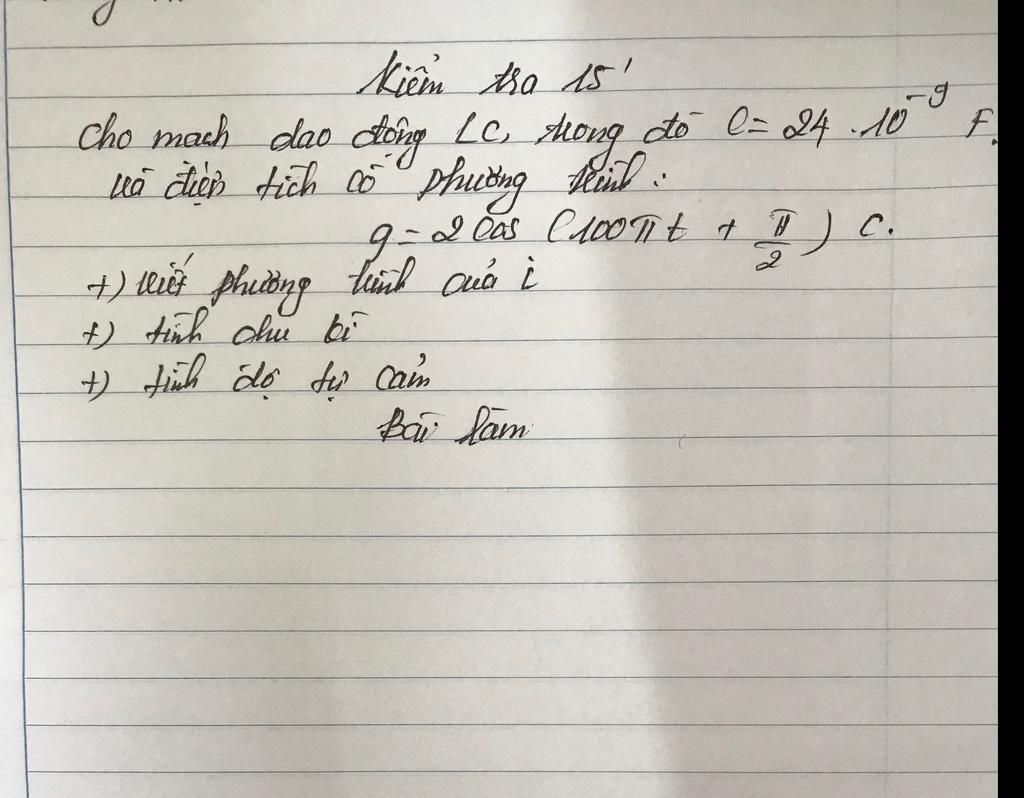 Kiểm tra 15'
Cho mạch dao động LC, trong đó C = 24 . 10⁻⁹ F.
và điện tích có phương trình :
q = 2 cos (100πt + π/2) C.
+) viết phương trình của i
+) tính chu kì
+) tính độ tự cảm
Bài làm